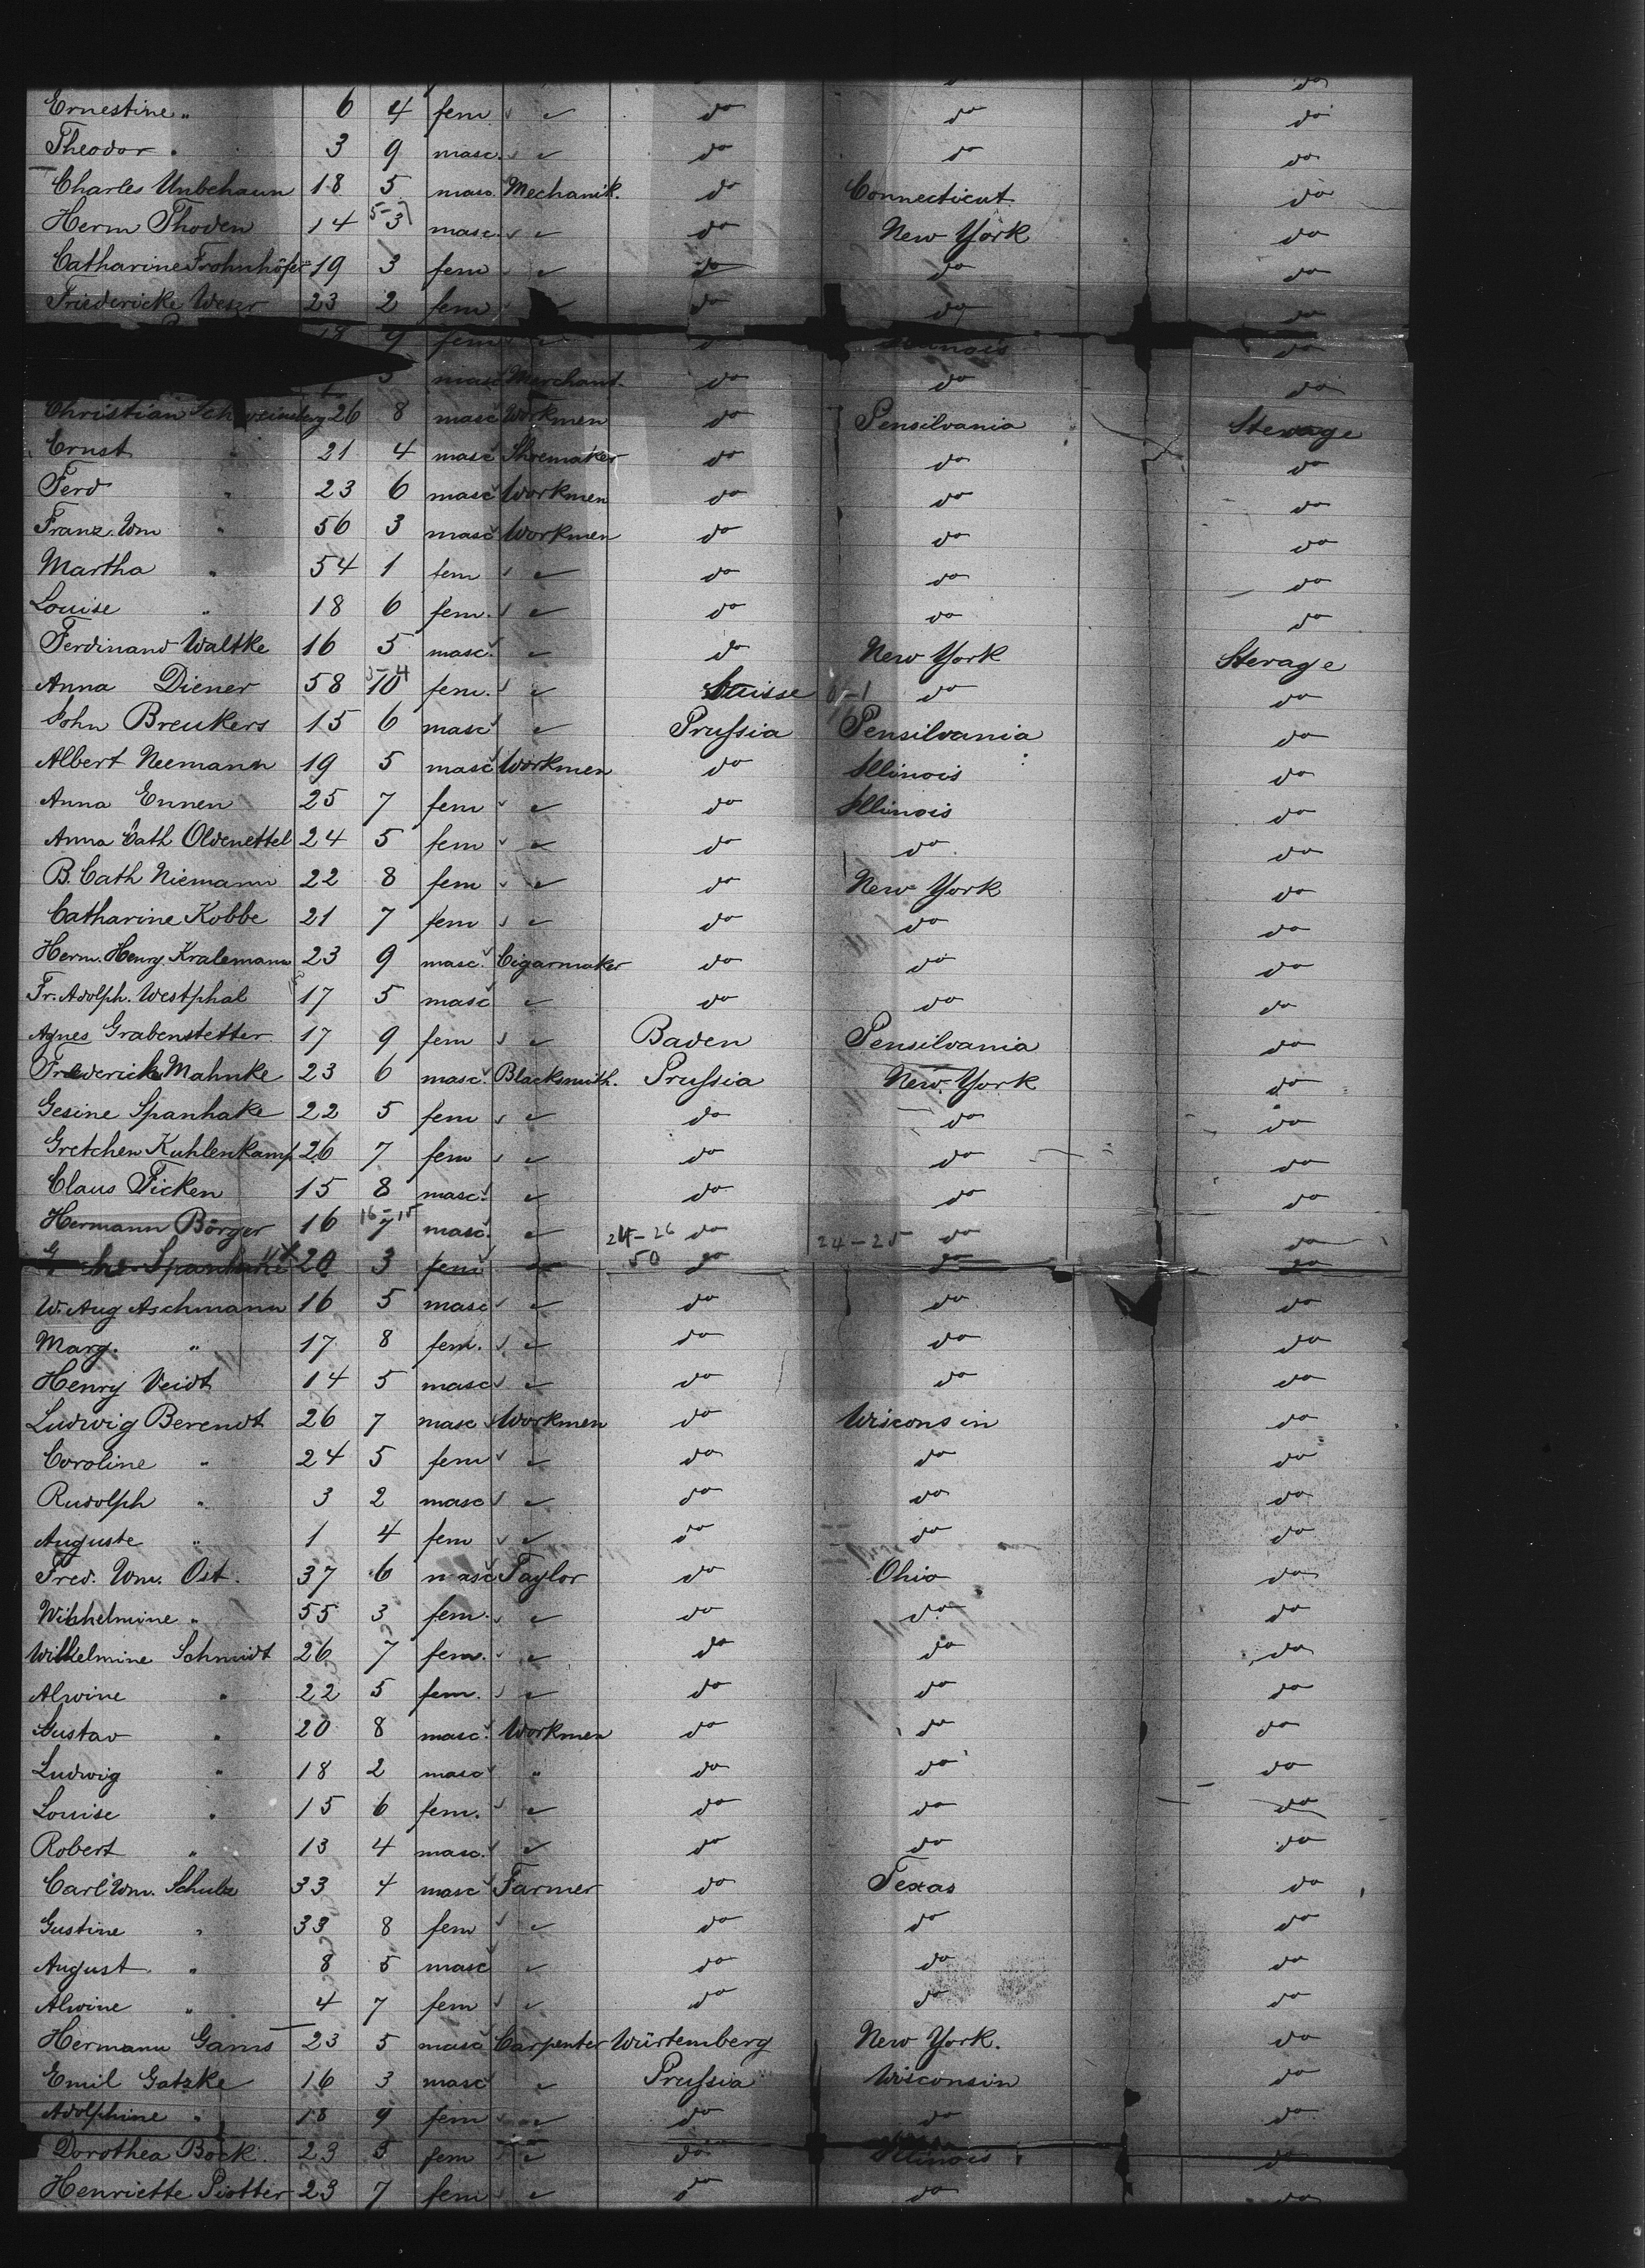 do do
Ernestine „ 6 4 fem do do do
Theodor „ 3 9 masc. do do do
Charles Unbehaun 18 5 masc. Mechanik. do Connecticut do
Herm Thoden 14 5-3 masc. do New York do
Catharine Frohnhöfer 19 3 fem do do do
Friedericke 23 2 fem do do do
18 9 fem do Illinois do
masc Merchant. do do do
Christian 26 8 masc Workmen do Pensilvania Sterage
Ernst „ 21 4 masc Shoemaker do do do
Ferd „ 23 6 masc Workmen do do do
Franz. Wm „ 56 3 masc Workmen do do do
Martha „ 54 1 fem do do do
Louise „ 18 6 fem. do do do
Ferdinand Waltke 16 5 masc. do New York Sterage
Anna Diener 58 10 fem. Suisse do do
John Breukers 15 6 masc Prussia Pensilvania do
Albert Neemann 19 5 masc Workmen do Illinois do
Anna Ennen 25 7 fem do Illinois do
Anna Cath Oldenettel 24 5 fem do do do
B. Cath Niemann 22 8 fem do New York do
Catharine Kobbe 21 7 fem do do do
Herm. Henry Kralemann 23 9 masc. Cigarmaker do do do
Fr. Adolph. Westphal 17 5 masc do do do
Agnes Grabenstetter 17 9 fem Baden Pensilvania do
Frederick Mahnke 23 6 masc. Blacksmith. Prussia New York do
Gesine Spanhake 22 5 fem do do do
Gretchen Kuhlenkamp 26 7 fem do do do
Claus Ficken 15 8 masc. do do do
Hermann Börger 16 16-15 7 masc. 24-26 do 24-25 do do
20 3 fem 50 do do do
W. Aug Aschmann 16 5 masc do do do
Marg. „ 17 8 fem. do do do
Henry Veidt 14 5 masc do do do
Ludwig Berendt 26 7 masc Workmen do Wisconsin do
Coroline „ 24 5 fem do do do
Rudolph „ 3 2 masc do do do
Auguste „ 1 4 fem do do do
Fred. Wm. Ost. 37 6 masc Taylor do Ohio do
Wilhelmine „ 55 3 fem. do do do
Wilhelmine Schmidt 26 7 fem. do do do
Alwine „ 22 5 fem. do do do
Gustav „ 20 8 masc. Workmen do do do
Ludwig „ 18 2 masc „ do do do
Louise „ 15 6 fem. do do do
Robert „ 13 4 masc. do do do
Carl Wm. Schulz 33 4 masc Farmer do Texas do
Gustine „ 33 8 fem do do do
August „ 8 5 masc do do do
Alwine „ 4 7 fem do do do
Hermann Ganns 23 5 masc Carpenter Würtemberg New York. do
Emil Gatzke 16 3 masc Prussia Wisconsin do
Adolphine „ 18 9 fem do do do
Dorothea Bock. 23 5 fem do Illinois do
Henriette Piotter 23 7 fem do do do